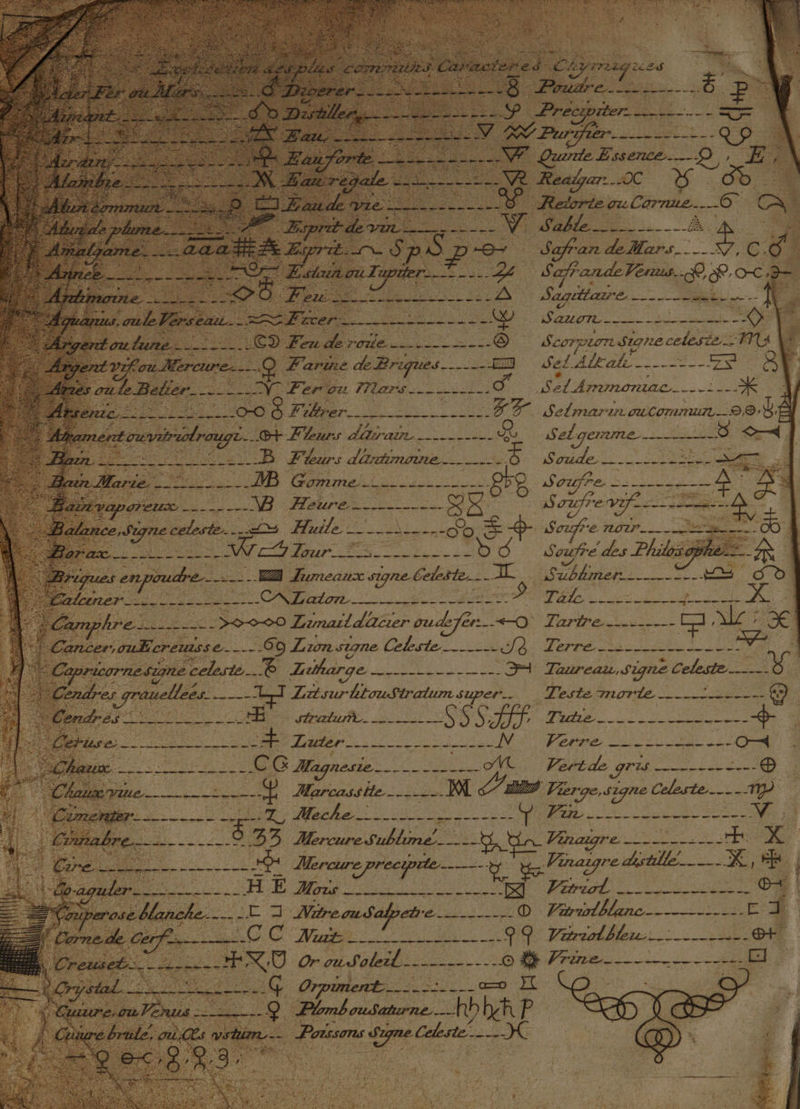 Explication des plus communs Caracteres Chymiques
Acier Fer ou Mars
Aymant
Air
Airain
Alambic
Alun commun
Alun de plume
Amalgame aaa
Année
Antimoine
Aquarius, ou le Verseau
Argent ou lune
Argent vif ou Mercure
Aries ou le Belier
Arsenic
Atrament ou vitriol rouge
Bain B
Bain Marie MB
Bain vaporeux VB
Balance, Signe celeste
Borax
Briques en poudre
Calciner
Camphre
Cancer, ou Ecreuisse 69
Capricorne signe celeste
Cendres grauellées
Cendres
Ceruse
Chaux C
Chaux viue
Cimenter Z
Cinnabre 33
Cire
Coaguler H E
Couperose blanche
Corne de Cerf C C
Creuset
Crystal
Cuiure, ou Venus
Cuiure brulé, ou Æs vstum
Digerer 8
Distiller
Eau
Eau forte
Eau regale
Eau de vie
Esprit de vin V
Esprit Sp
Estain ou Iupiter
Feu
Fixer
Feu de roüe
Farine de Briques
Fer ou Mars
Filtrer
Fleurs d'airain
Fleurs d'antimoine
Gomme
Heure
Huile
Iour
Iumeaux signe Celeste
Laton
Limail d'acier ou de fer
Lion signe Celeste
Litharge
Lit sur lit ou Stratum super
stratum SSS fff
Luter
Magnesie
Marcassite M
Meche
Mercure Sublimé
Mercure precipité
Mois
Nitre ou Salpetre
Nuit
Or ou Soleil
Orpiment
Plomb ou Saturne
Poissons Signe Celeste
Poudre
Precipiter
Purifier
Quinte Essence
Realgar
Retorte ou Cornue
Sable
Safran de Mars
Safran de Venus
Sagittaire
Sauon
Scorpion Signe celeste
Sel Alkali
Sel Ammoniac
Sel marin ou commun
Sel gemme
Soude
Souffre
Soufre vif
Soufre noir
Soufre des Philosophes
Sublimer
Talc X
Tartre
Terre
Taureau, Signe Celeste
Teste morte
Tutie
Verre
Vert de gris
Vierge, signe Celeste
Vin V
Vinaigre
Vinaigre distillé
Vitriol
Vitriol blanc
Vitriol bleu
Vrine